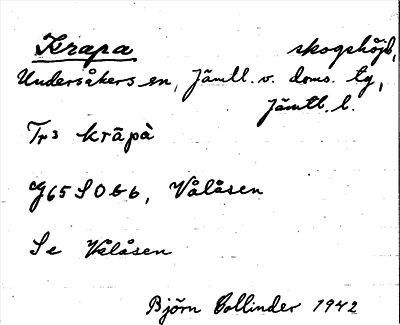 Krapa skogshöjd,
Undersåkers sn, Jämtl. v. doms. tg,
Jämtl. l.
Tr3 krāpà
J65 S O b b, Vålåsen
Se Vålåsen
Björn Collinder 1942